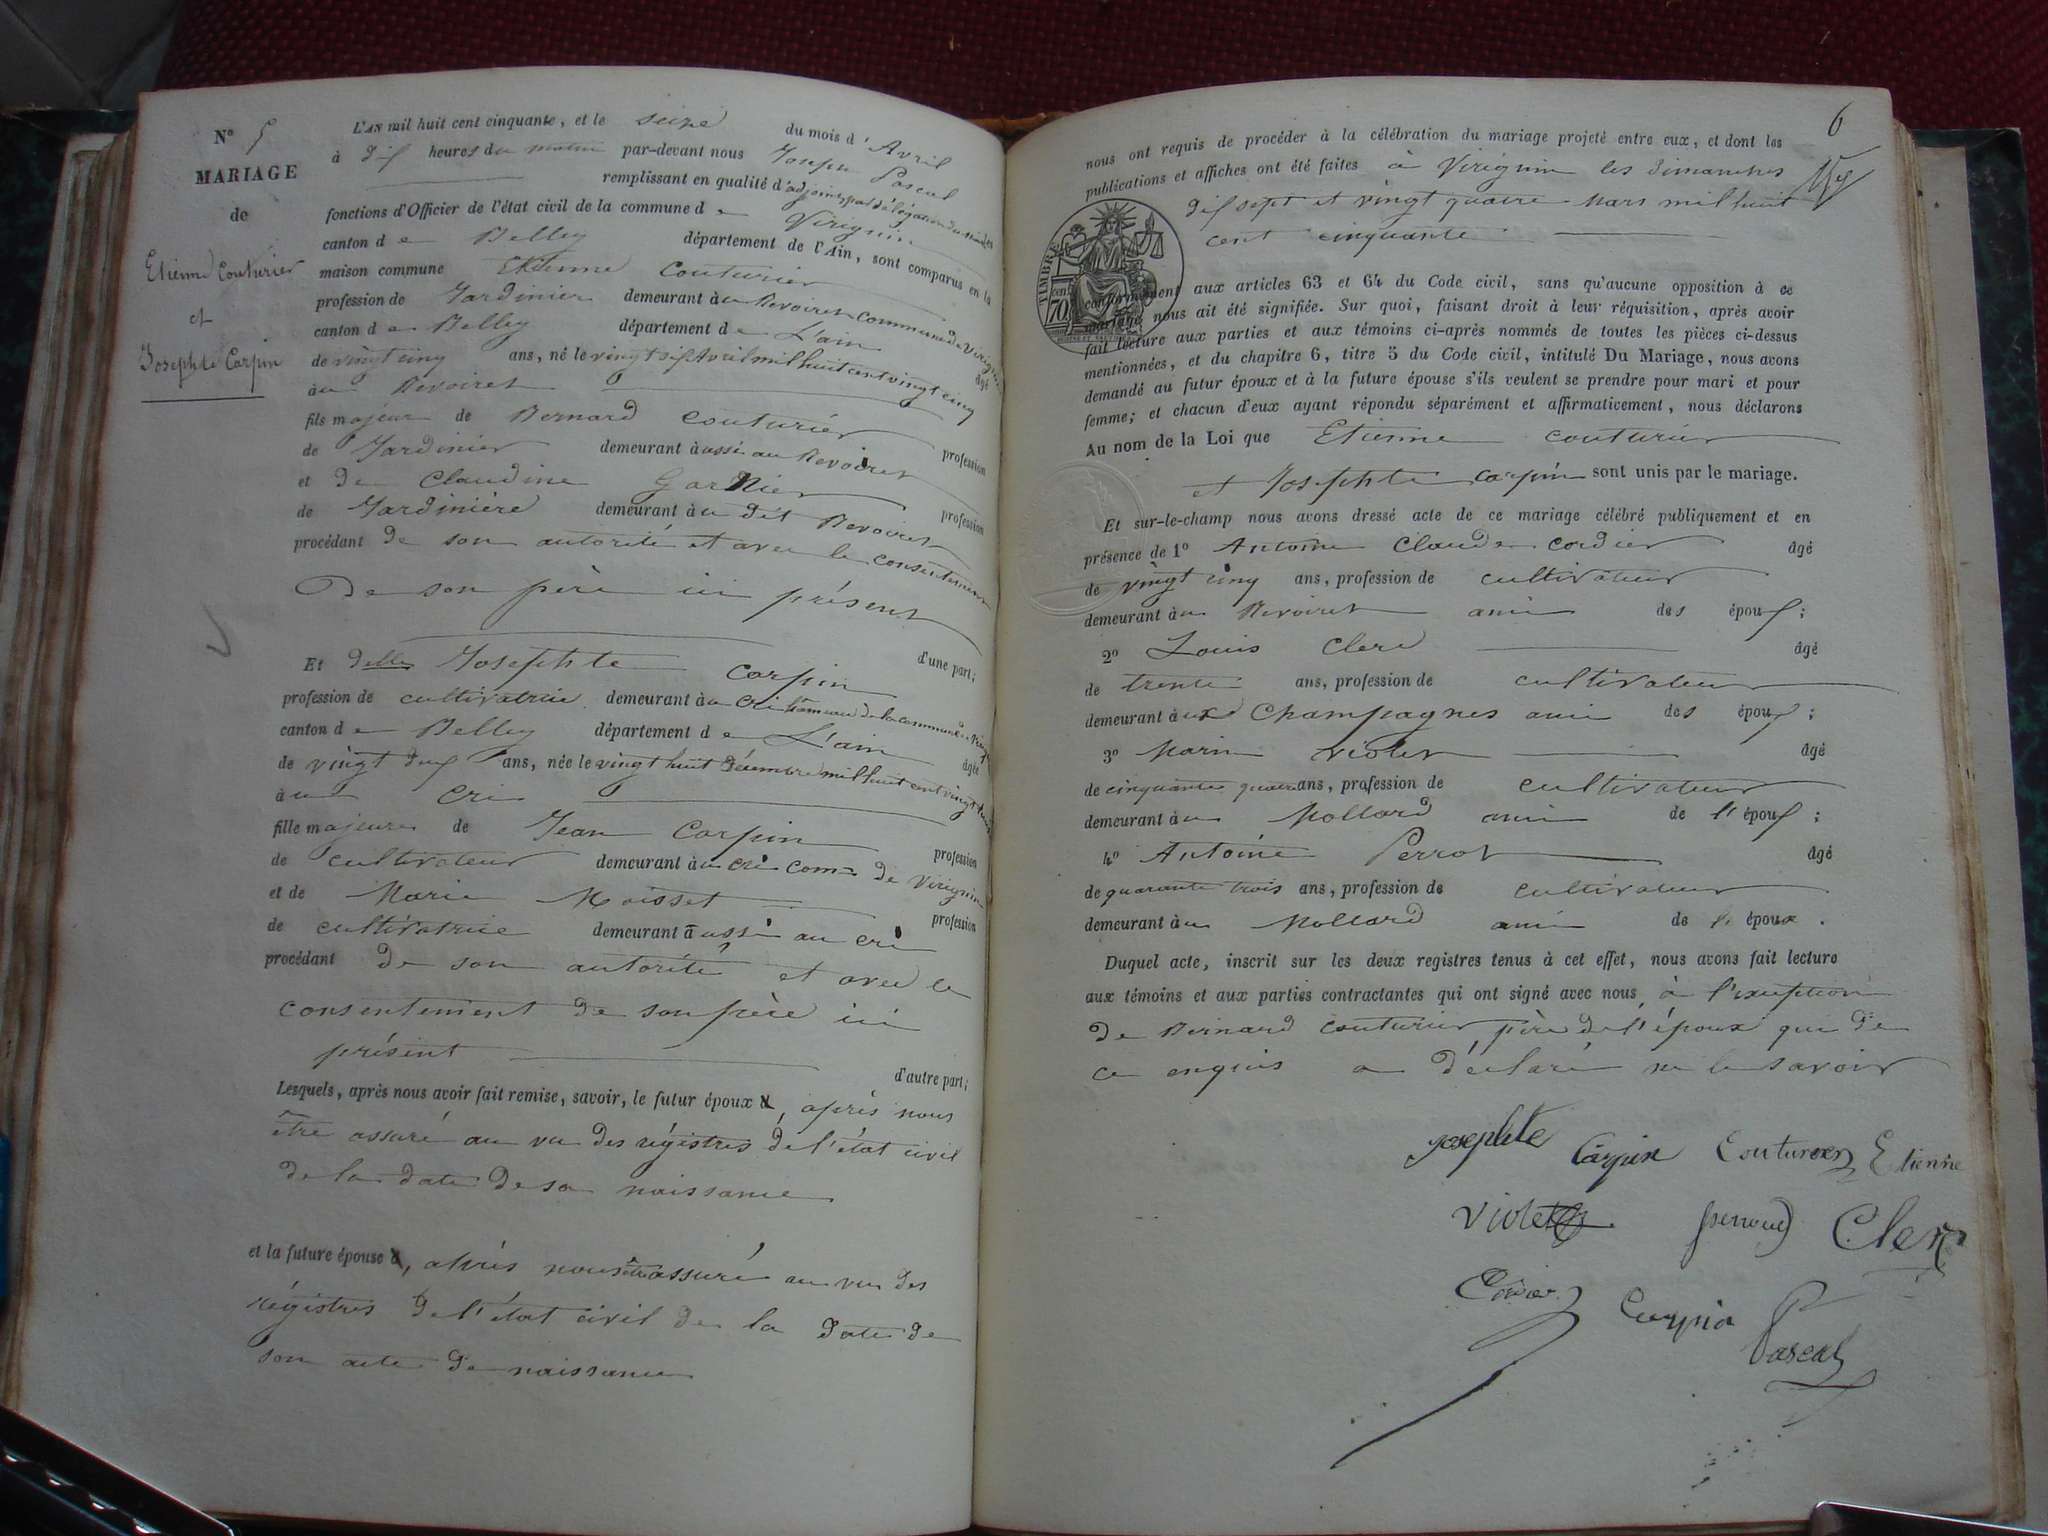 N° 5
MARIAGE
de
Etienne Couturier
et
Josephte Carpin
L'AN mil huit cent cinquante, et le seize du mois d'Avril
à dix heures du matin par-devant nous Joseph Pascal
remplissant en qualité d'adjoint, par délégation du Maire, les
fonctions d'Officier de l'état civil de la commune de Virignin
canton de Belley département de l'Ain, sont comparus en la
maison commune Etienne Couturier
profession de Jardinier demeurant au Revoiret commune de Virignin
canton de Belley département de L'ain âgé
de vingt cinq ans, né le vingt six Avril mil huit cent vingt cinq
au Revoiret
fils majeur de Bernard Couturier profession
de Jardinier demeurant aussi au Revoiret
et de Claudine Garnier profession
de Jardinière demeurant au dit Revoiret
procédant de son autorité et avec le consentement
De son père ici présent
d'une part;
Et delle Josephte Carpin
profession de cultivatrice demeurant au Cri hameau de la commune de Virignin
canton de Belley département de L'ain âgée
de vingt deux ans, née le vingt huit Décembre mil huit cent vingt
au Cri
fille majeure de Jean Carpin profession
de cultivateur demeurant au cri comne de Virignin
et de Marie Moisset profession
de cultivatrice demeurant aussi au cri
procédant de son autorité et avec le
consentement de son père ici
présent
d'autre part;
Lesquels, après nous avoir fait remise, savoir, le futur époux, après nous
être assuré au vu des régistres de l'état civil
de la date de sa naissance
et la future épouse, après nous être assuré au vu des
régistres de l'état civil de la date de
son acte de naissance
6
nous ont requis de procéder à la célébration du mariage projeté entre eux, et dont les
publications et affiches ont été faites à Virignin les dimanches
dix sept et vingt quatre Mars mil huit
cent cinquante
TIMBRE
70
conformément aux articles 63 et 64 du Code civil, sans qu'aucune opposition à ce
mariage nous ait été signifiée. Sur quoi, faisant droit à leur réquisition, après avoir
fait lecture aux parties et aux témoins ci-après nommés de toutes les pièces ci-dessus
mentionnées, et du chapitre 6, titre 5 du Code civil, intitulé Du Mariage, nous avons
demandé au futur époux et à la future épouse s'ils veulent se prendre pour mari et pour
femme; et chacun d'eux ayant répondu séparément et affirmativement, nous déclarons
Au nom de la Loi que Etienne couturier
et Josephte Carpin sont unis par le mariage.
Et sur-le-champ nous avons dressé acte de ce mariage célébré publiquement et en
présence de 1° Antoine Claude Cordier âgé
de vingt cinq ans, profession de cultivateur
demeurant au Revoiret ami des époux;
2° Louis Clerc âgé
de trente ans, profession de cultivateur
demeurant aux Champagnes ami des époux;
3° Marin Violet âgé
de cinquante quatre ans, profession de cultivateur
demeurant au Mollard ami de l'époux;
4° Antoine Perrot âgé
de quarante trois ans, profession de cultivateur
demeurant au Mollard ami de l'époux.
Duquel acte, inscrit sur les deux registres tenus à cet effet, nous avons fait lecture
aux témoins et aux parties contractantes qui ont signé avec nous, à l'exception
de Bernard couturier père de l'époux qui de
ce enquis a déclaré ne le savoir
Josephte Carpin Couturier Etienne
Violet Clerc
Carpin
Pascal